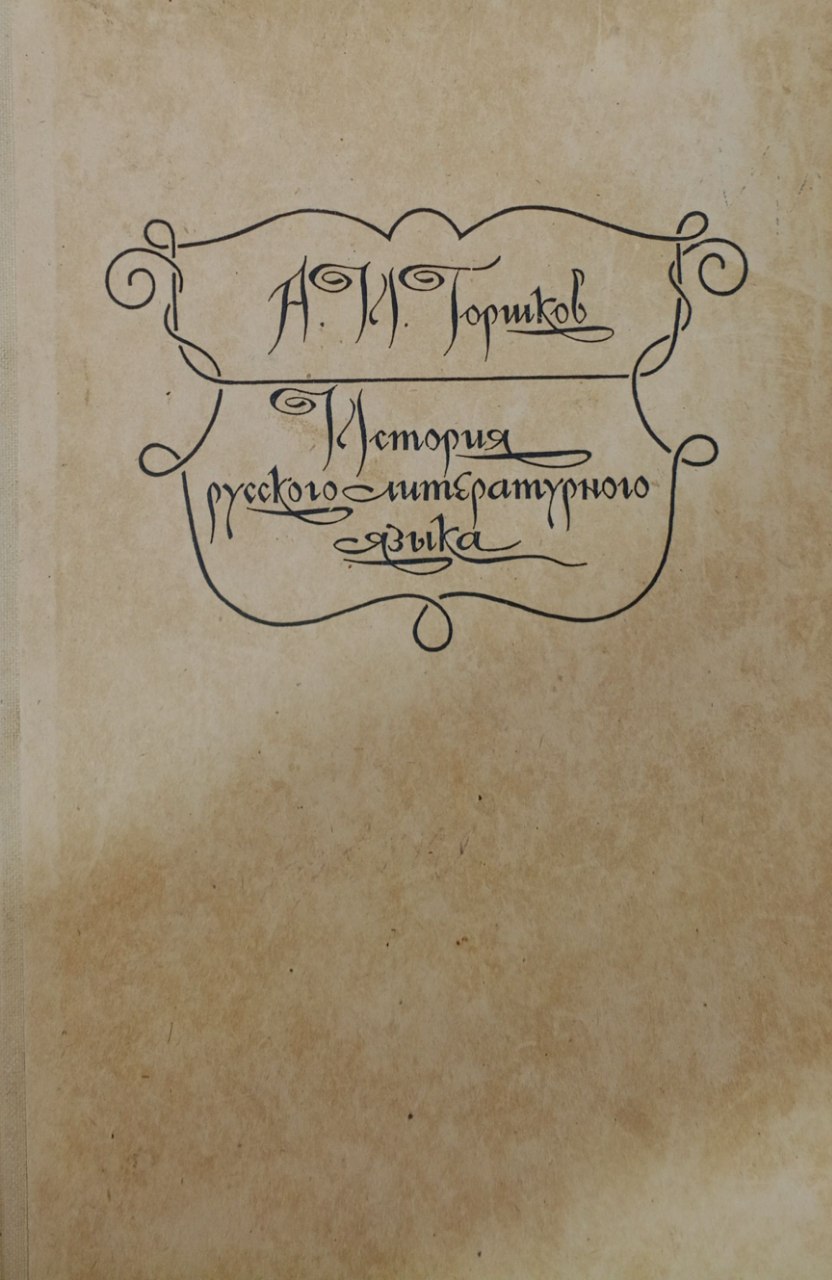 А. И. Горшков
История
русского литературного
языка